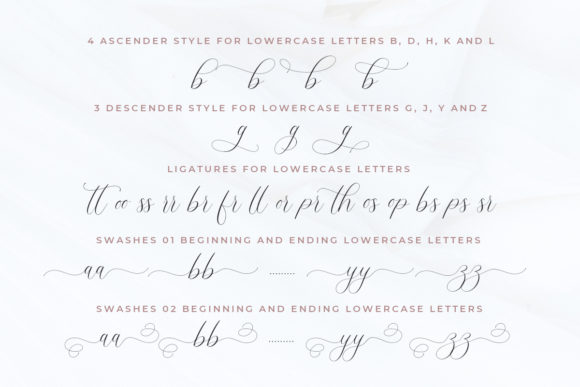 4 ASCENDER STYLE FOR LOWERCASE LETTERS B, D, H, K AND L
b b b b
3 DESCENDER STYLE FOR LOWERCASE LETTERS G, J, Y AND Z
g g g
LIGATURES FOR LOWERCASE LETTERS
tt oo ss rr br fr ll or pr th os op bs ps sr
SWASHES 01 BEGINNING AND ENDING LOWERCASE LETTERS
aa bb ........ yy zz
SWASHES 02 BEGINNING AND ENDING LOWERCASE LETTERS
aa bb ........ yy zz